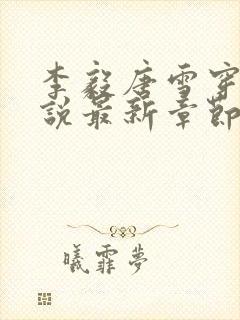 李毅唐雪穿
說最新章節
曦霏夢